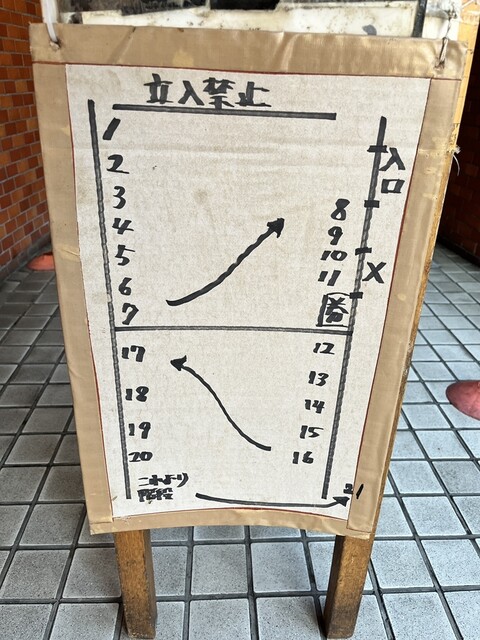 立入禁止
入口
1
2
3
4
5
6
7
8
9
10
11
X
12
13
14
15
16
17
18
19
20
これより
階段
21